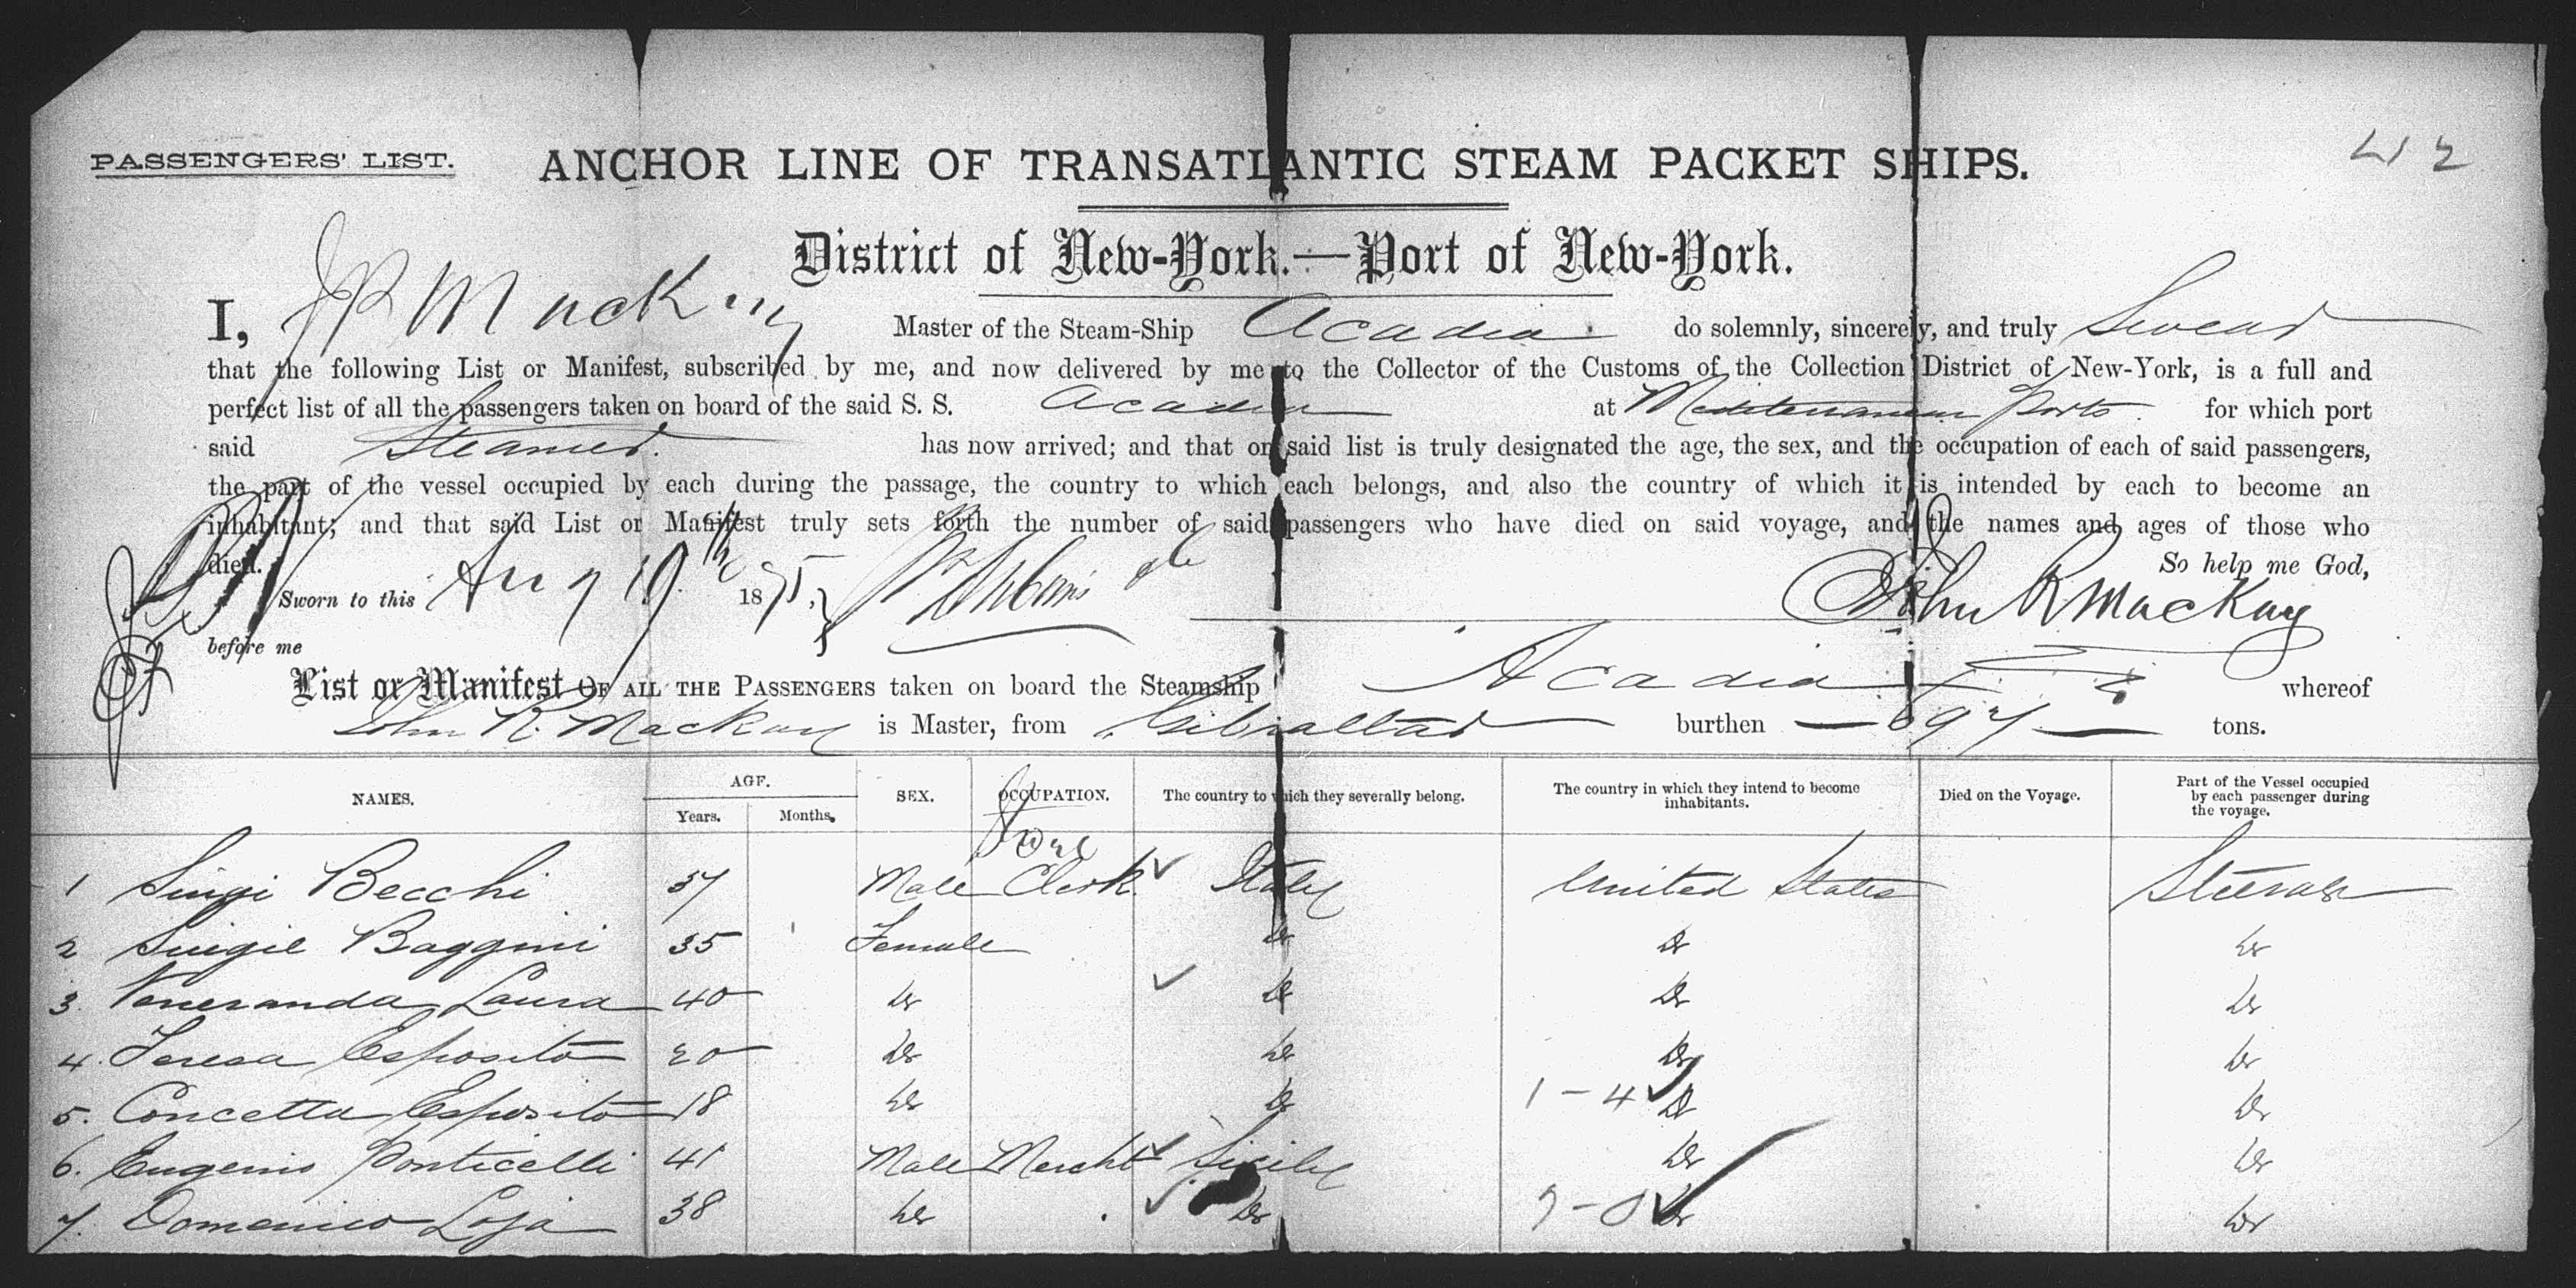 PASSENGERS' LIST. ANCHOR LINE OF TRANSATLANTIC STEAM PACKET SHIPS. 412
District of New-York.—Port of New-York.
I, J R MacKay Master of the Steam-Ship Acadia do solemnly, sincerely, and truly Swear
that the following List or Manifest, subscribed by me, and now delivered by me to the Collector of the Customs of the Collection District of New-York, is a full and
perfect list of all the passengers taken on board of the said S. S. Acadia at Mediterranean Ports for which port
said Steamer has now arrived; and that on said list is truly designated the age, the sex, and the occupation of each of said passengers,
the part of the vessel occupied by each during the passage, the country to which each belongs, and also the country of which it is intended by each to become an
inhabitant; and that said List or Manifest truly sets forth the number of said passengers who have died on said voyage, and the names and ages of those who
died. So help me God,
Sworn to this Aug 19 1875, John R MacKay
before me
List or Manifest OF ALL THE PASSENGERS taken on board the Steamship Acadia whereof
John R. MacKay is Master, from Gibraltar burthen — 697 — tons.
NAMES. AGE. Years. Months. SEX. OCCUPATION. The country to which they severally belong. The country in which they intend to become inhabitants. Died on the Voyage. Part of the Vessel occupied by each passenger during the voyage.
1 Luigi Becchi 37 Male Clerk Italy United States Steerage
2 Luigie Baggini 35 Female Do Do Do
3. Veneranda Laura 40 Do Do Do Do
4. Teresa Esposito 20 Do Do Do Do
5. Concetta Esposito 18 Do Do 1-4 Do Do
6. Eugenio Ponticelli 41 Male Mercht Sicily Do Do
7. Domenico Loja 38 Do Do Do Do